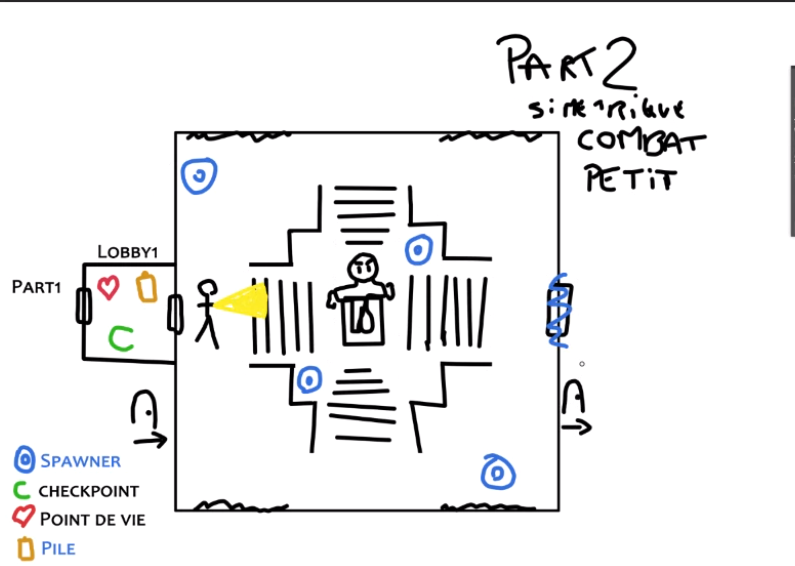 PART 2
SiMETRiQUE
COMBAT
PETiT
LOBBY1
PART1
SPAWNER
CHECKPOINT
POINT DE VIE
PILE